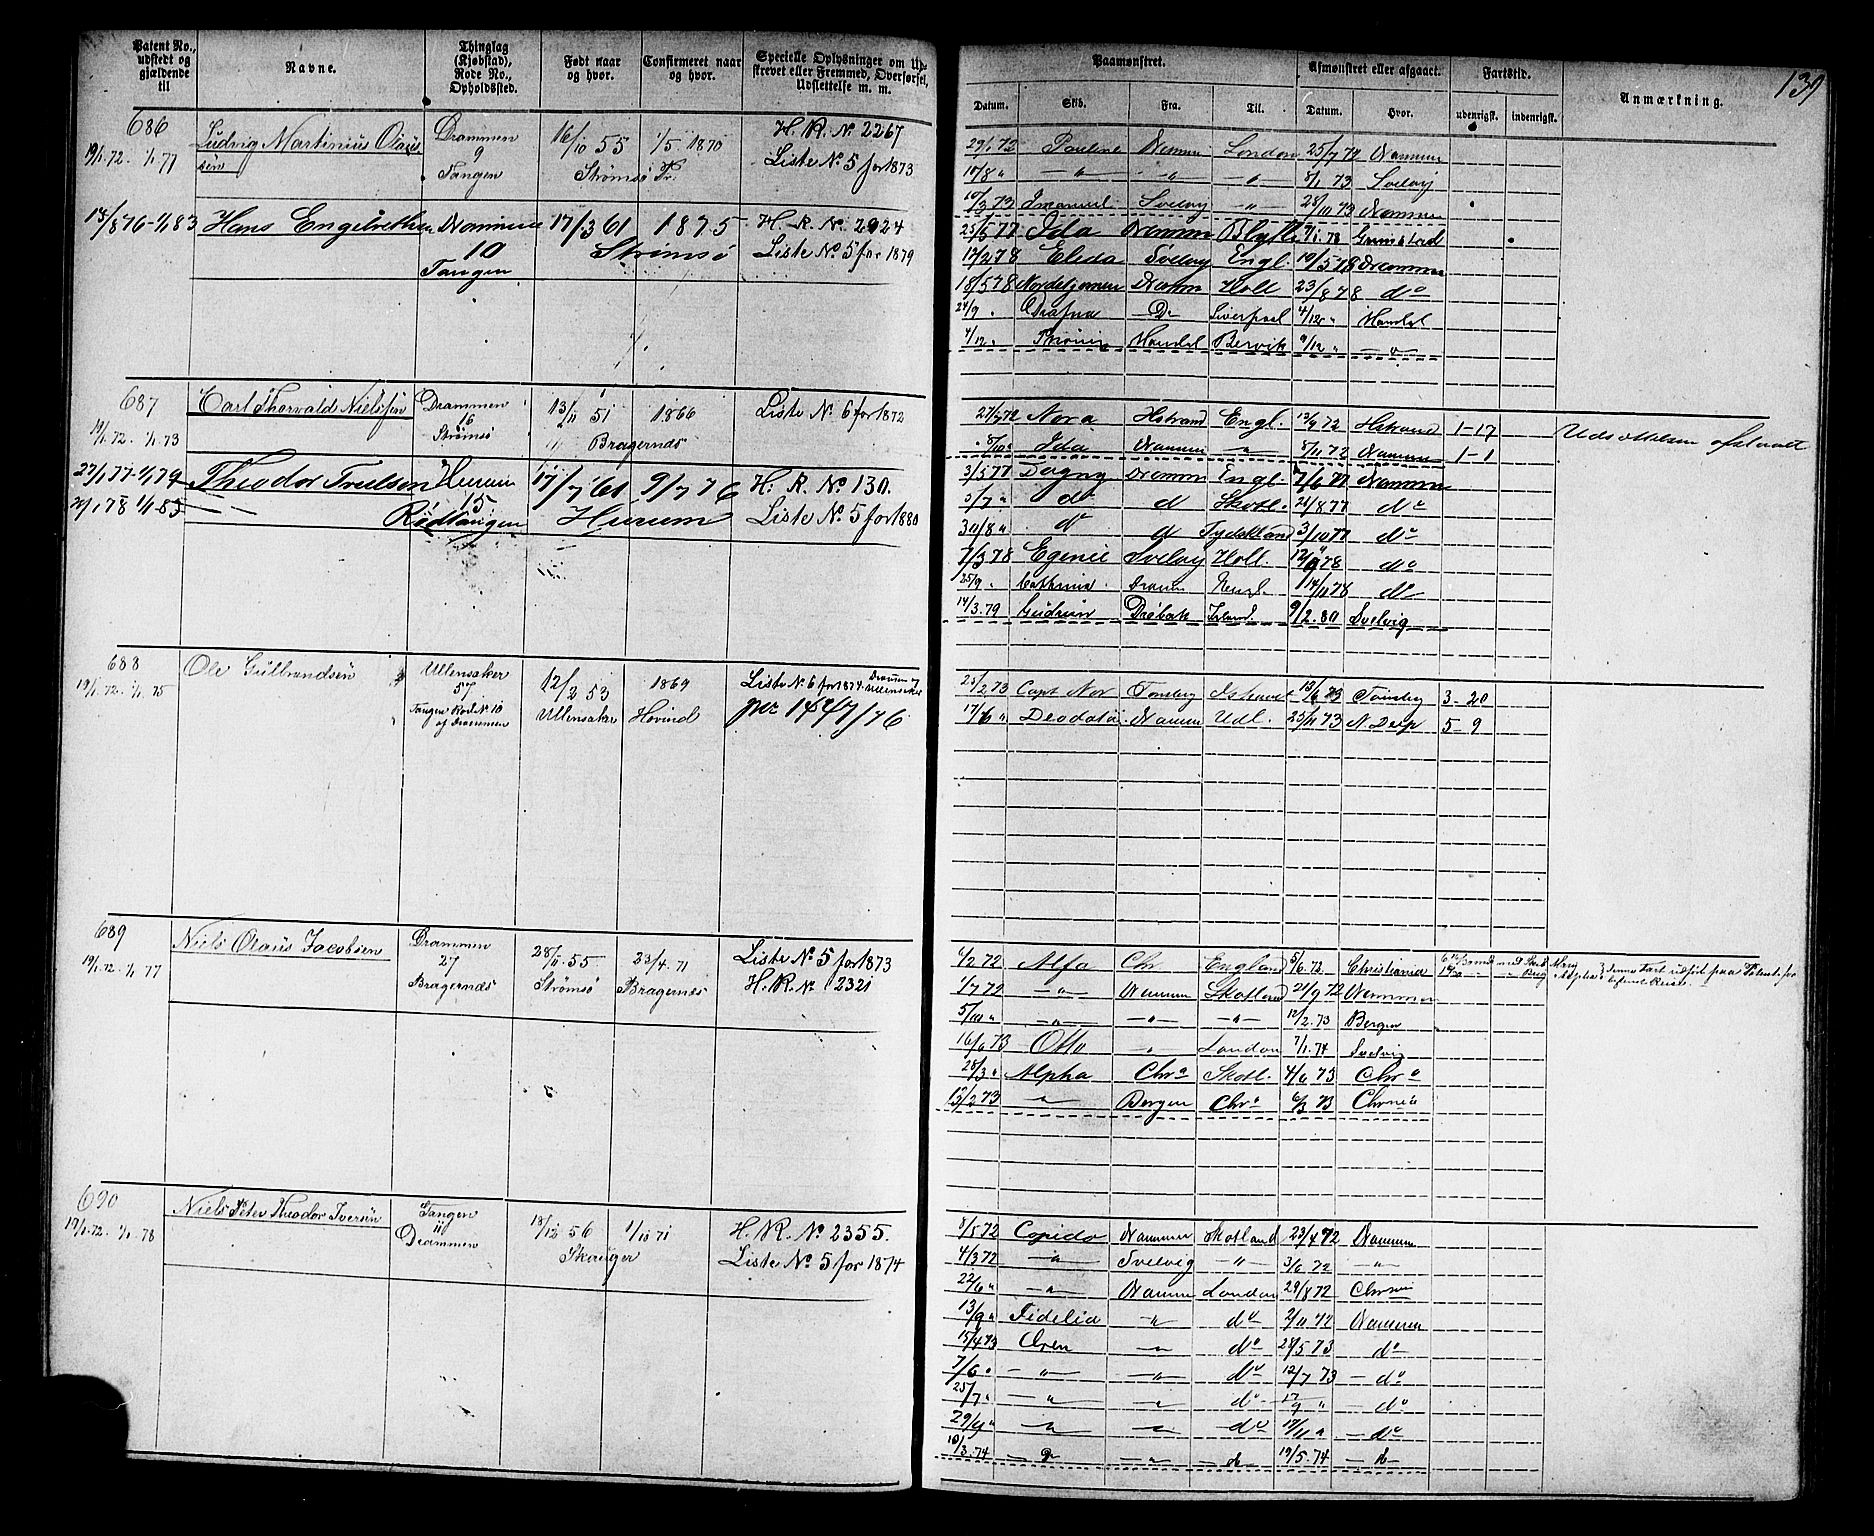 139
Patent No., udstedt og gjældende til
Navne.
Thinglag (Kjøbstad), Rode No., Opholdssted.
Født naar og hvor.
Confirmeret naar og hvor.
Specielle Oplysninger om Udstrevet eller Fremmed, Overførsel, Udslettelse m. m.
Paamønstret.
Afmønstret eller afgaaet.
Fartstid.
Anmærkning.
Datum. Skib. Fra. Til. Datum. Hvor. udenrigsk. indenrigsk.
686 Ludvig Martinius Olaus Drammen 16/10 55 1/5 1870 H. R. No. 2267
19/1.72. 1/1 77 sön 9 Strømsø Tr. Liste No 5 for 1873
Tangen
29/1 72 Pauline Drammen London 25/7 72 Drammen
10/8 " —"— " —"— 8/1 73 Svelvig
10/3 73 Imanuel Svelvig —"— 28/11 73 Drammen
14/8 76 - 1/1 83 Hans Engebrethsen Drammen 17/3 61 1875 H. R. No. 2924
10 Strømsø Liste No 5 for 1879
Tangen
25/5 77 Ida Drammen Blyth 7/1 78 Grimstad
12/2 78 Elida Svelvig Engl. 10/5 78 Drammen
18/5 78 Nordstjernen Dramm Holl 23/8 78 do
24/9 " Drafna Do Liverpool 4/12 " Mandal
4/12 " Mandal Bervik 9/12 " —"—
687 Carl Thorvald Nielssen Drammen 13/11 51 1866 Liste No 6 for 1872
19/1.72. 1/1 73 16 Bragernæs
Strømsø
27/7 72 Nora Hstrand Engl. 13/9 72 Hstrand 1-17 Udslettelsen
8/10 " Ida Drammen —"— 8/11 72 Drammen 1-1
27/1 77 - 1/1 79 Theodor Truelsen Hurum 17/7 61 9/7 76 H. R. No 130.
29/1 78 1/1-83 —"— 15 Hurum Liste No 5 for 1880
Rødtangen
3/5 77 Dagny Dramm Engl. 7/6 77 Drammen
3/7 " do d Skotl. 21/8 77 do
30/8 " do d Tydskland 3/10 77 do
7/3 78 Egenie Svelvig Holl. 12/9 78 do
25/9 " Cathrine Dram Engl. 14/11 78 do
14/3.79 Gudrun Drøbak Irland. 9/2.80 Svelvig
688 Ole Gulbrandsön Ullensaker 12/2 53 1869 Liste No 6 for 1874. Drammen og Ullensaker
19/1.72. 1/1 75 57 Ullensaker Hovind pr 1447/76
Tangen Rod. No 10 af Drammen
25/2 73 Capt Nor Tønsberg Ishavet 13/6 73 Tønsberg 3-20
17/6 " Deodata Drammen Udl. 25/11 73 N. Diep 5-9
689 Niels Olaus Jacobsen Drammen 28/11 55 23/4.71 Liste No 5 for 1873
19/1.72. 1/1 77 27 Strømsø Bragernæs H. R. No 2321
Bragernæs
6/2 72 Alfa Chr England 5/6.72 Christiania
1/7 72 —"— Drammen Skotland 21/9 72 Drammen
5/10 " —"— —"— —"— 12/2.73 Bergen
16/6 73 Otto —"— London 7/1.74 Svelvig
25/3 " Alpha Chra Skotl. 4/6 73 Chra
12/2 73 —"— Bergen Chra 6/3 73 Chrnia
690 Niels Peter Theodor Iversön Tangen 18/12 56 1/10 71 H. R. No 2355.
19/1.72. 1/1 78 11 Skouger Liste No 5 for 1874
Drammen
8/1 72 Copido Drammen Skotland 23/4 72 Drammen
4/3 72 —"— Svelvig —"— 3/6 72 —"—
22/6 " —"— Drammen London 29/8 72 Chrnia
13/9 " Fidelia —"— do 2/11 72 Drammen
15/4 73 Oren —"— do 28/5 73 do
7/6 " —"— —"— do 12/7 73 —do
25/7 " —"— —"— do 17/9 " —do
29/9 " —"— —"— do 14/11 " —do
10/3.74 —"— —"— —d— 19/5.74 —d—